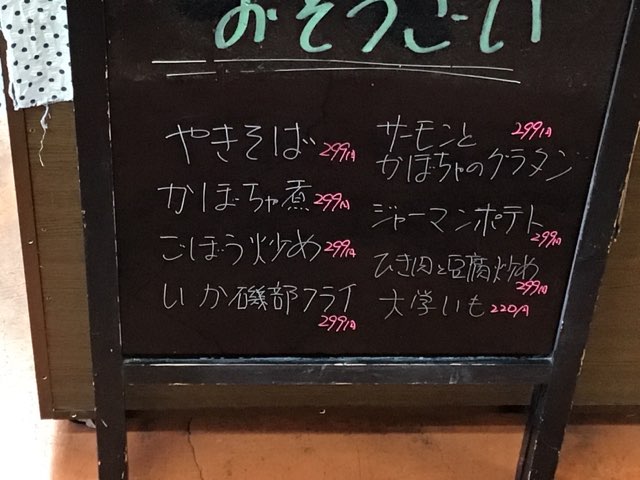 おそうざい
やきそば 299円
かぼちゃ煮 299円
ごぼう炒め 299円
いか磯部フライ
299円
サーモンと 299円
かぼちゃのグラタン
ジャーマンポテト
299円
ひき肉と豆腐炒め
299円
大学いも 220円